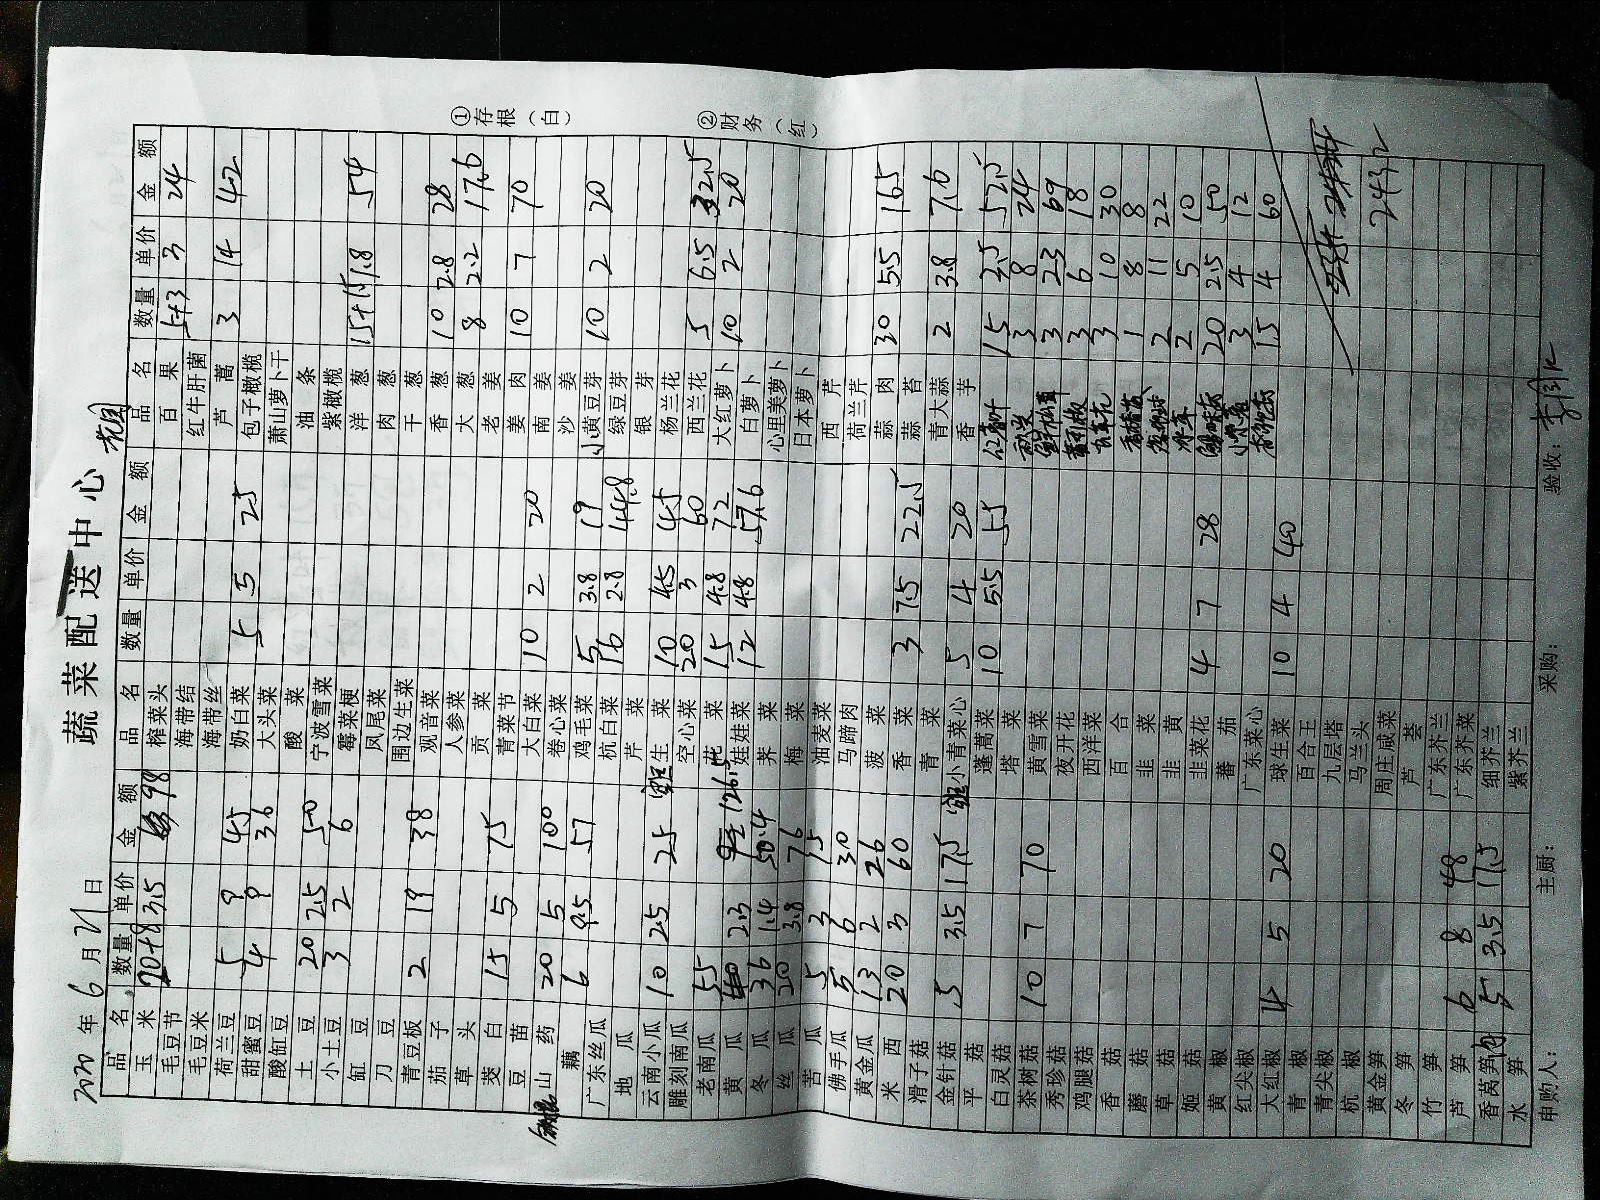 蔬菜配送中心
年 6 月 21 日
品名 数量 单价 金额
玉米 20+8 3.5 98
毛豆节
毛豆米
荷兰豆 5 9 45
甜蜜豆 4 9 36
酸缸豆
土豆 20 2.5 50
小土豆 3 2 6
缸豆
刀豆
青豆板 2 19 38
茄子
草头
茭白 15 5 75
豆苗
山药 20 5 100
藕 6 9.5 57
广东丝瓜
地瓜
云南小瓜 10 2.5 25
雕刻南瓜
老南瓜
黄瓜 55 2.3 126.5
冬瓜 36 1.4 50.4
丝瓜 20 3.8 76
苦瓜 5 3 15
佛手瓜 5 6 30
黄金瓜 13 2 26
米西 20 3 60
滑子菇
金针菇 5 3.5 17.5
平菇
白灵菇
茶树菇 10 7 70
秀珍菇
鸡腿菇
香菇
蘑菇
草菇
姬菇
黄椒
红尖椒
大红椒 4 5 20
青椒
青尖椒
杭椒
黄金笋
冬笋
竹笋
芦笋 6 8 48
香莴笋 5 3.5 17.5
水笋
品名 数量 单价 金额
榨菜头
海带结
海带丝
奶白菜 5 5 25
大头菜
酸菜
宁波雪菜
霉菜梗
凤尾菜
围边生菜
观音菜
人参菜
贡菜
青菜节
大白菜 10 2 20
卷心菜
鸡毛菜 5 3.8 19
杭白菜 16 2.8 44.8
芹菜
生菜 10 4.5 45
空心菜 20 3 60
花菜 15 4.8 72
娃娃菜 12 4.8 57.6
荠菜
梅菜
油麦菜
马蹄肉
菠菜
香菜 3 7.5 22.5
青菜
小青菜心 5 4 20
蓬蒿菜 10 5.5 55
塔菜
黄雪菜
夜开花
西洋菜
百合
韭菜
韭黄
韭菜花 4 7 28
蕃茄
广东菜心
球生菜 10 4 40
百合王
九层塔
马兰头
周庄咸菜
芦荟
广东芥兰
广东芥菜
细芥兰
紫芥兰
品名 数量 单价 金额
百果 5+3 3 24
红牛肝菌
芦蒿 3 14 42
包子橄榄
萧山萝卜干
油条
紫橄榄
洋葱 15+15 1.8 54
肉葱
干葱
香葱 10 2.8 28
大葱 8 2.2 17.6
老姜
姜肉 10 7 70
南姜
沙姜
小黄豆芽 10 2 20
绿豆芽
银芽
杨兰花
西兰花 5 6.5 32.5
大红萝卜 10 2 20
白萝卜
心里美萝卜
日本萝卜
西芹
荷兰芹
蒜肉 30 5.5 165
蒜苔
青大蒜 2 3.8 7.6
香芋
15 3.5 52.5
3 8 24
3 23 69
3 6 18
3 10 30
1 8 8
2 11 22
2 5 10
20 2.5 50
3 4 12
15 4 60
2432
①存根（白）
②财务（红）
申购人：
主厨：
采购：
验收：